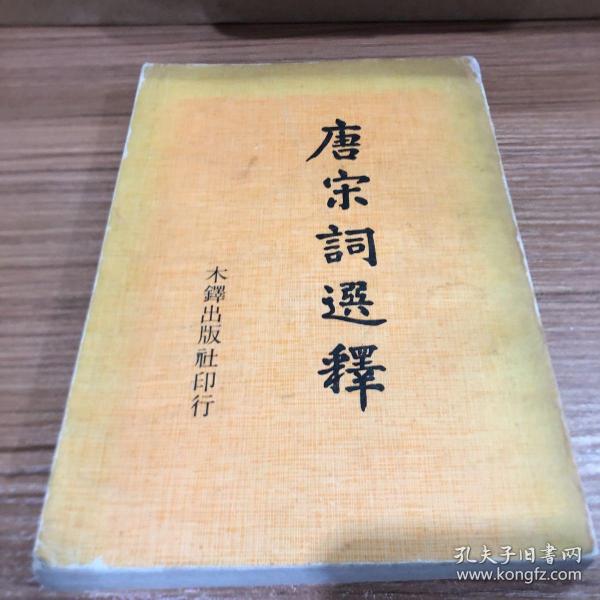 唐宋詞選釋
木鐸出版社印行
孔夫子旧书网
www.kongfz.com